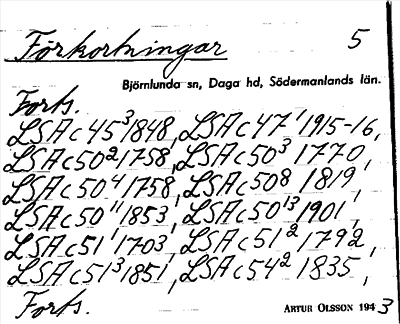 Förkortningar 5
Björnlunda sn, Daga hd, Södermanlands län.
Forts.
LSA c 45³ 1848, LSA c 47¹ 1915-16,
LSA c 50² 1758, LSA c 50³ 1770,
LSA c 50⁴ 1758, LSA c 50⁸ 1819,
LSA c 50¹¹ 1853, LSA c 50¹³ 1901,
LSA c 51¹ 1703, LSA c 51² 1792,
LSA c 51³ 1851, LSA c 54² 1835,
Forts.
ARTUR OLSSON 1943